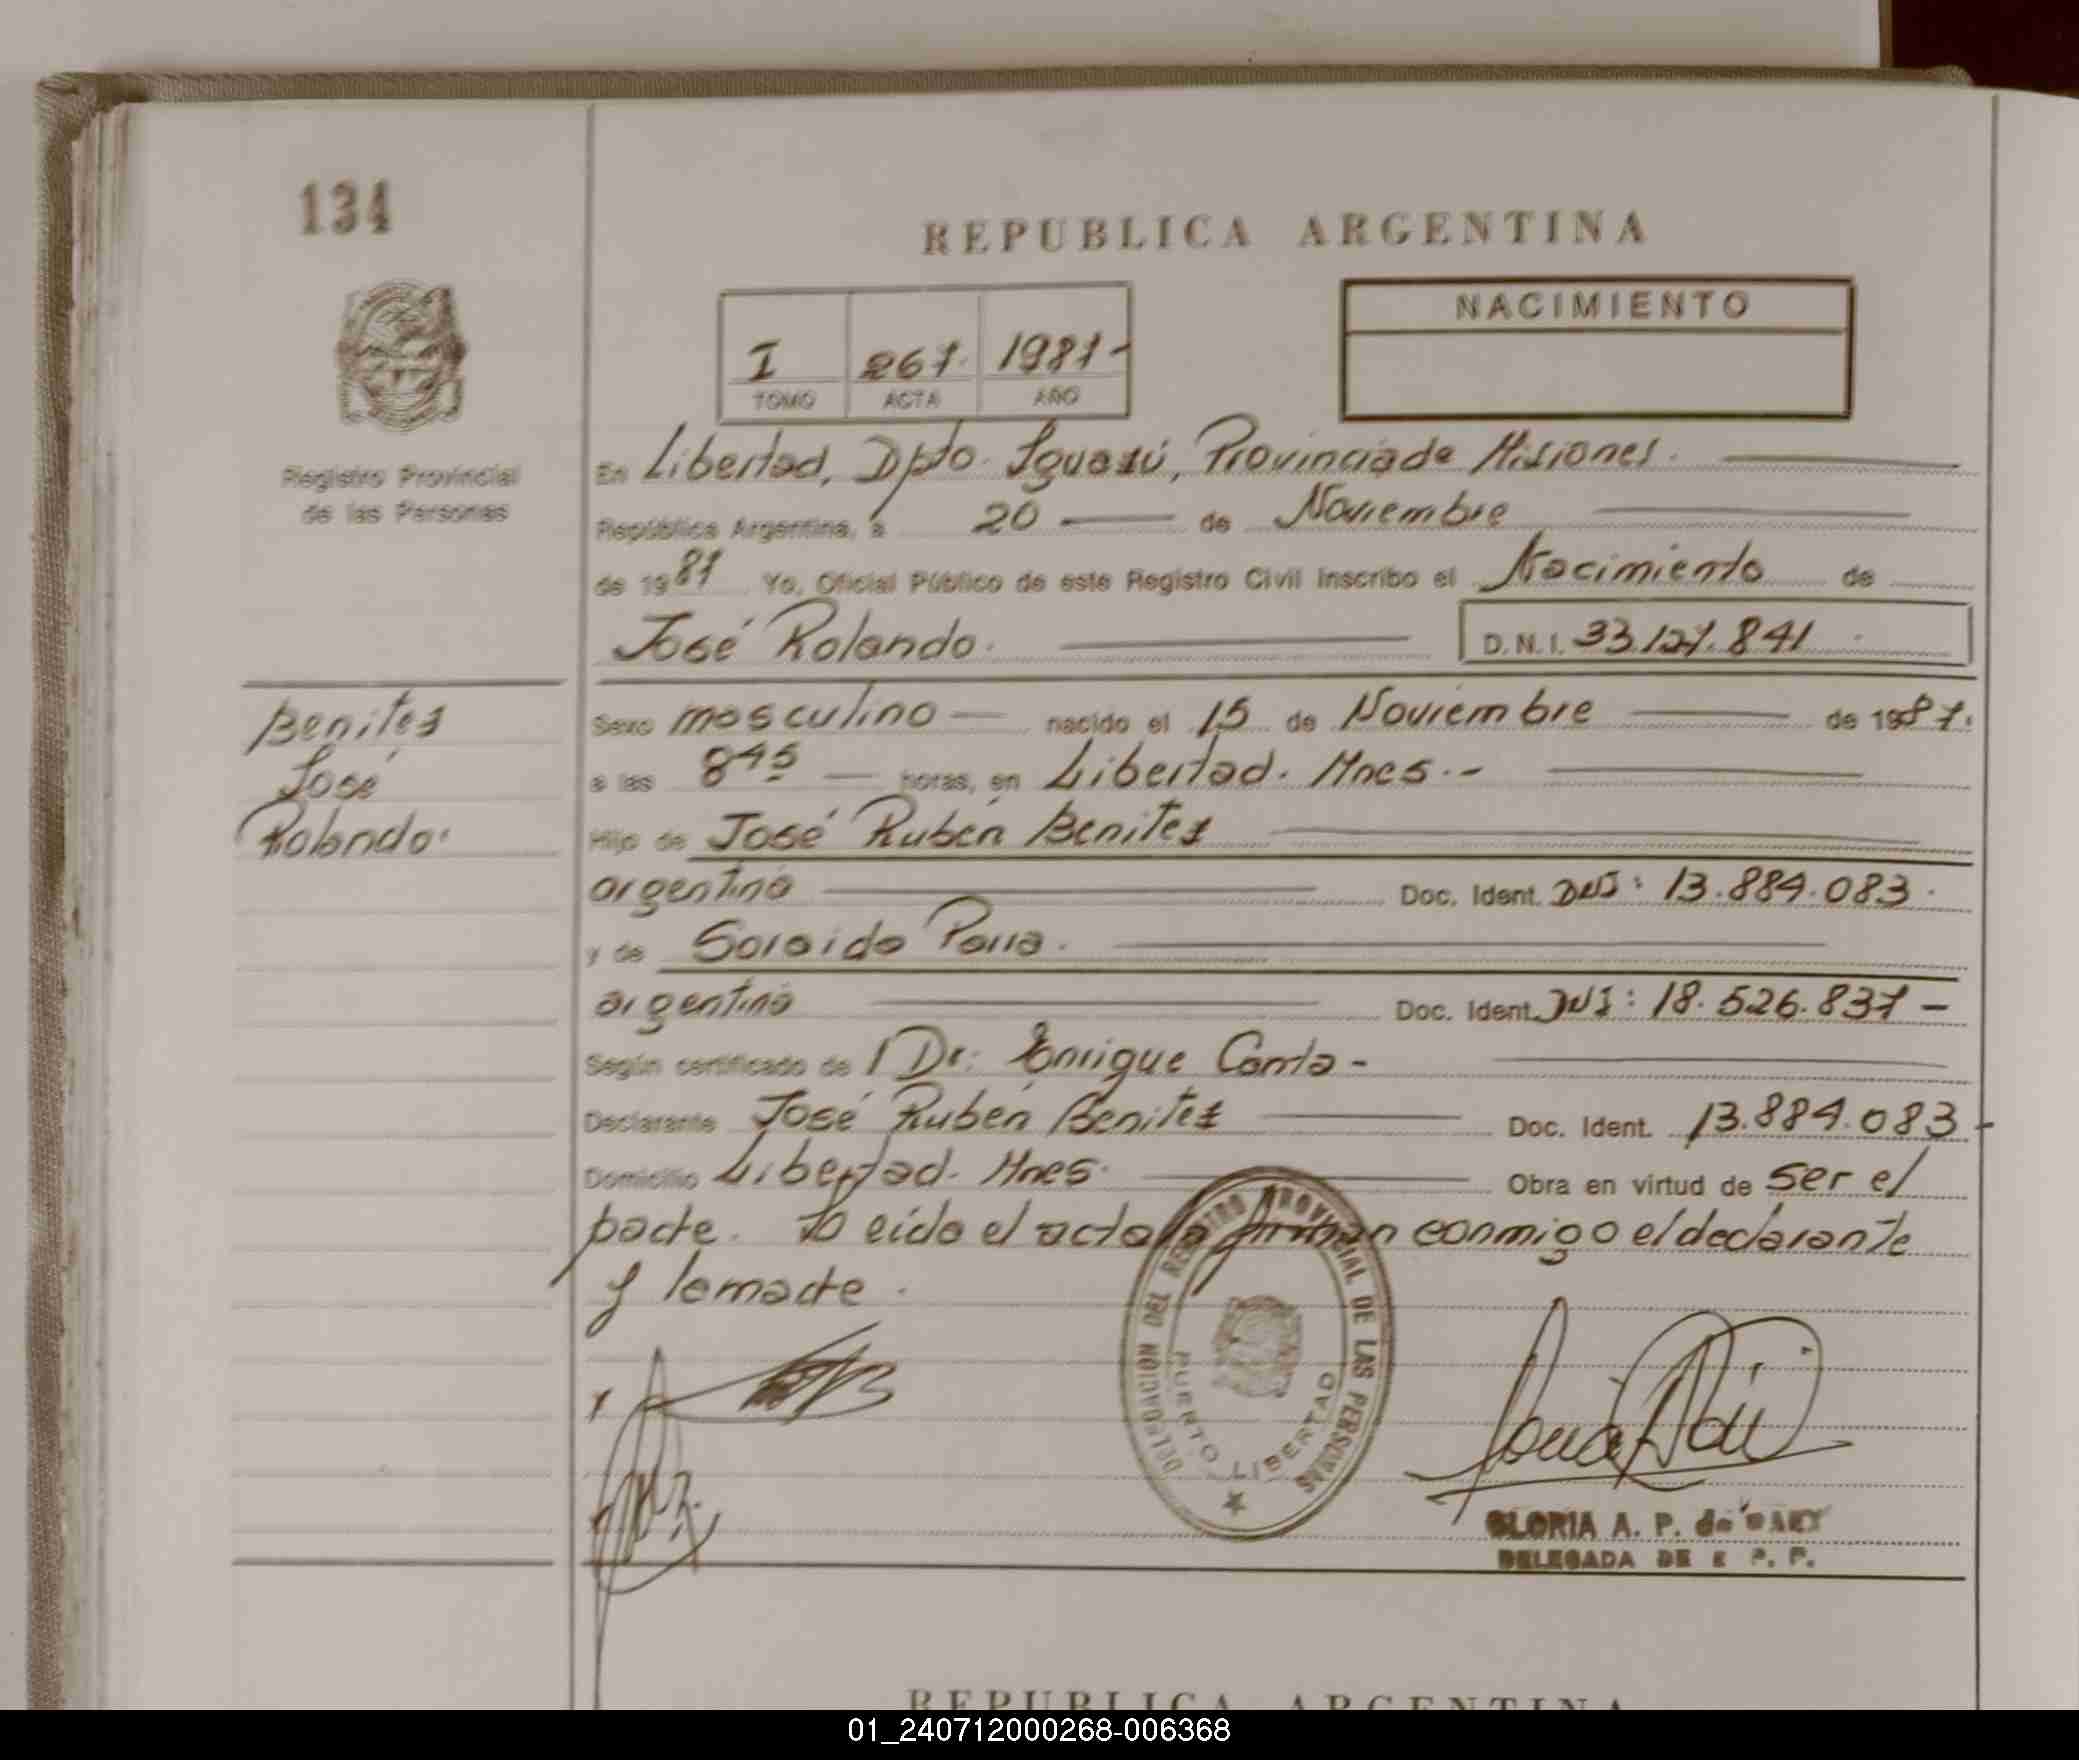 134
REPUBLICA ARGENTINA
NACIMIENTO
I 267. 1987-
TOMO ACTA AÑO
Registro Provincial
de las Personas
En Libertad, Dpto. Iguazú, Provincia de Misiones.
República Argentina, a 20 de Noviembre
de 1987 Yo, Oficial Público de este Registro Civil inscribo el Nacimiento de
José Rolando.
D.N.I. 33.127.841
Benites
José
Rolando.
Sexo masculino nacido el 15 de Noviembre de 1987.
a las 8 45 horas, en Libertad. Mnes.-
Hijo de José Rubén Benitez
argentina Doc. Ident. DNI: 13.884.083.
y de Soraida Parra.
argentina Doc. Ident. DNI: 18.526.837-
Según certificado de l Dr: Enrique Canta-
Declarante José Rubén Benitez Doc. Ident. 13.884.083-
Domicilio Libertad. Mnes. Obra en virtud de ser el
padre. Leído el acta la firman conmigo el declarante
y la madre.
DELEGACION DEL REGISTRO PROVINCIAL DE LAS PERSONAS
PUERTO LIBERTAD
GLORIA A. P. de
DELEGADA DE R. P. P.
REPUBLICA ARGENTINA
01_240712000268-006368